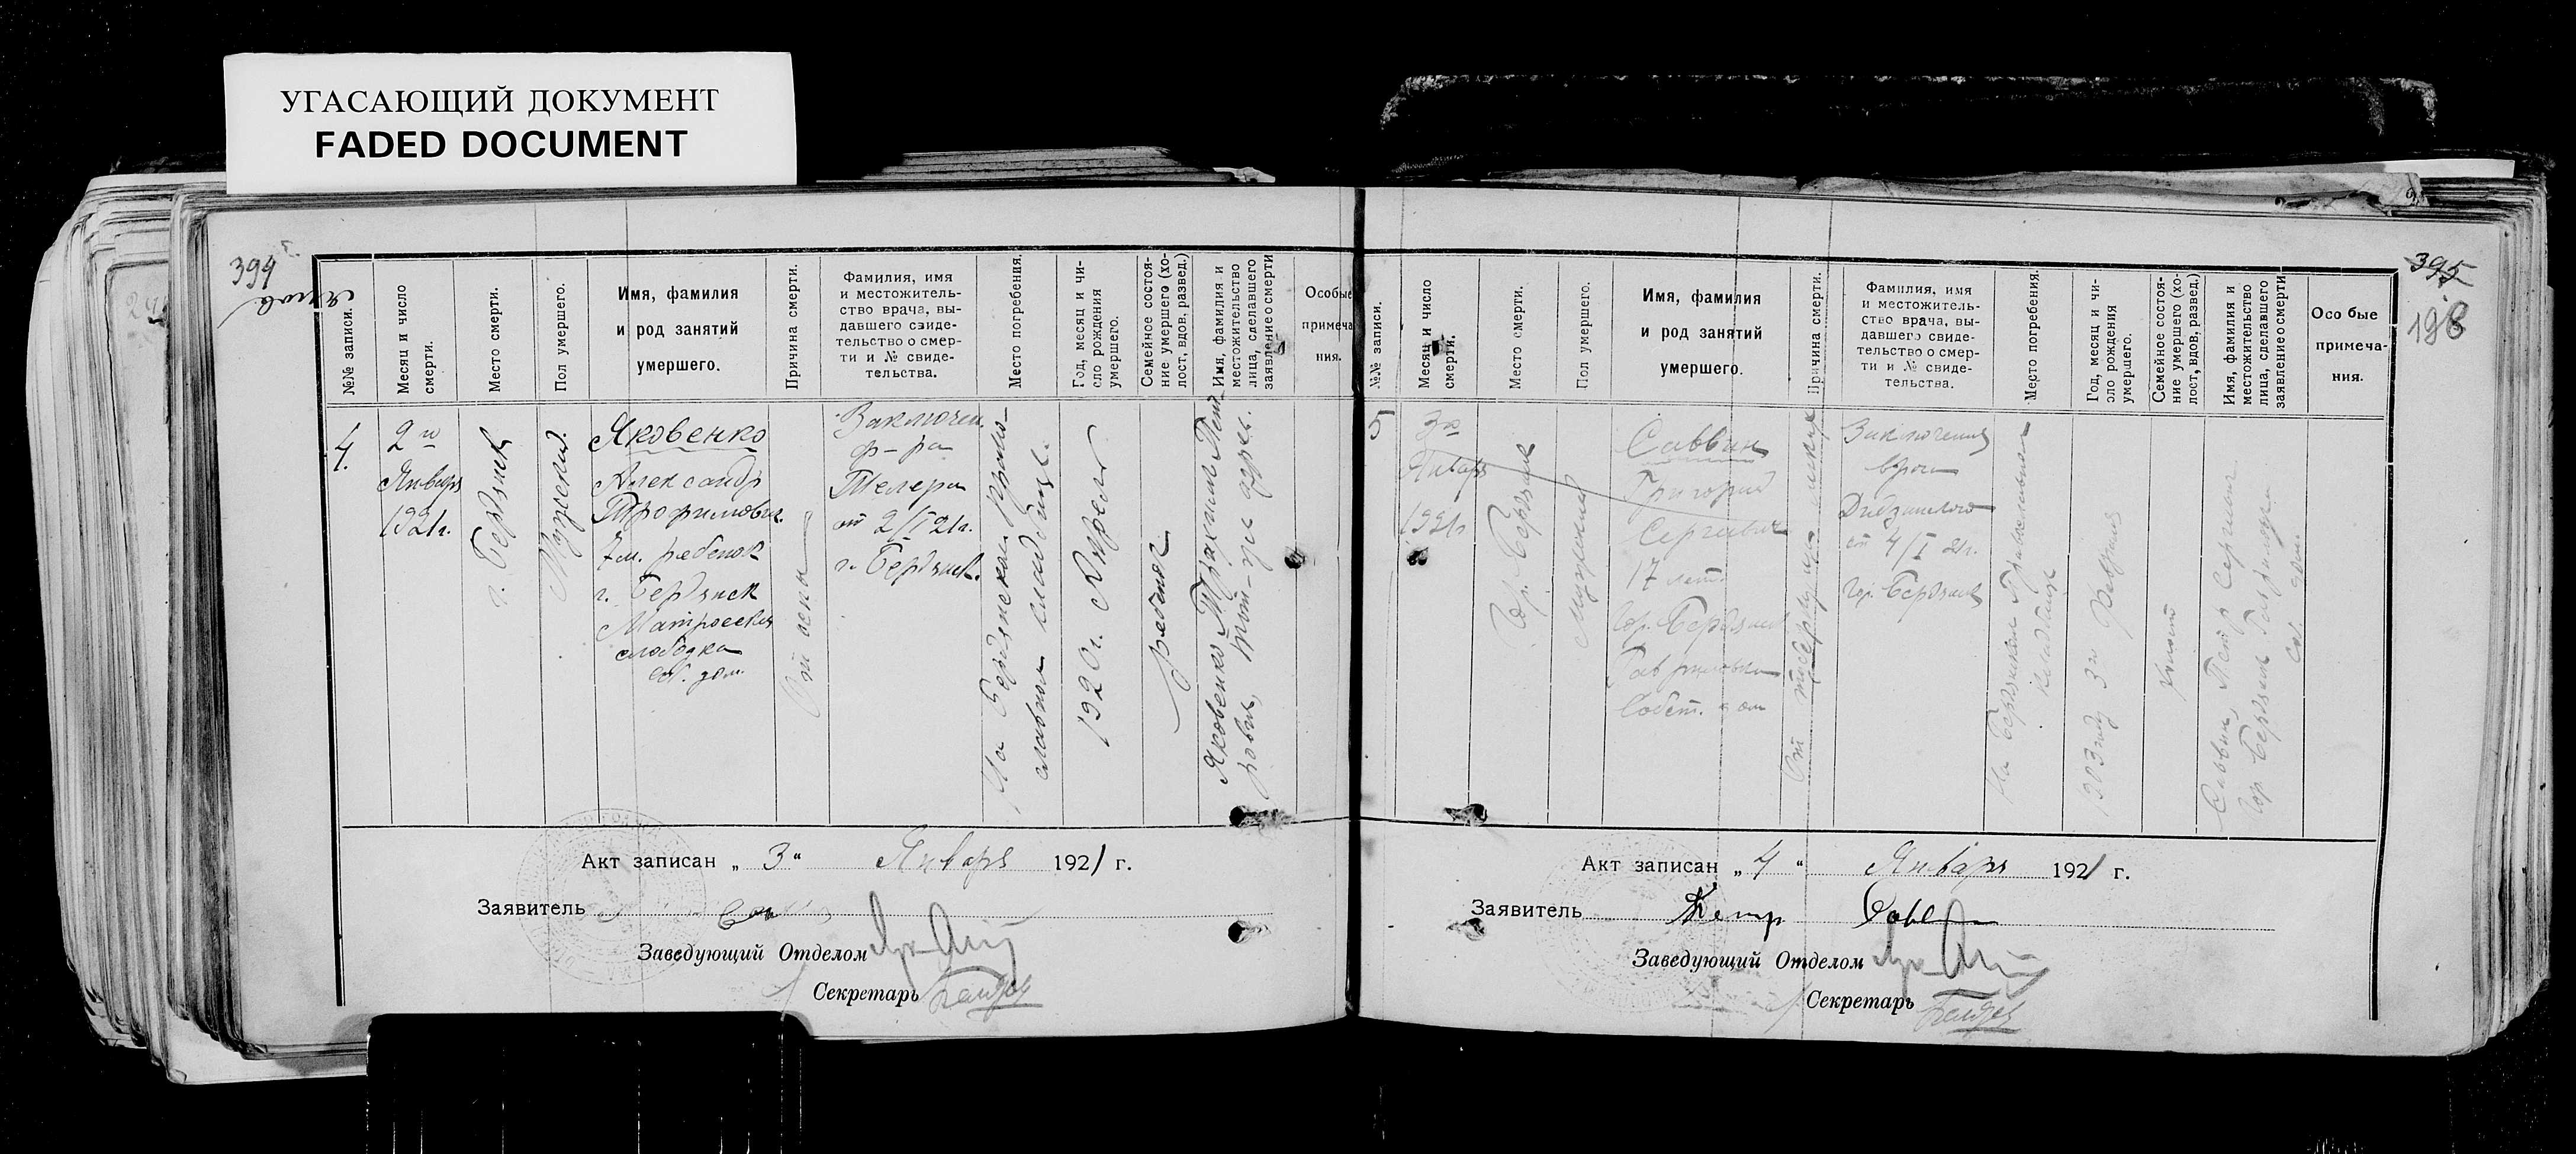 УГАСАЮЩИЙ ДОКУМЕНТ
FADED DOCUMENT
394
№№ записи.
Месяц и число
смерти.
Место смерти.
Пол умершего.
Имя, фамилия
и род занятий
умершего.
Причина смерти.
Фамилия, имя
и местожитель-
ство врача, вы-
давшего свиде-
тельство о смер-
ти и № свиде-
тельства.
Место погребения.
Год, месяц и чи-
сло рождения
умершего.
Семейное состоя-
ние умершего (хо-
лост, вдов, развед.)
Имя, фамилия и
местожительство
лица, сделавшего
заявление о смерти
Особые
примеча
ния.
4.
2го
Январь
1921г.
г. Бердянск
Мужской.
Яковенко
Александр
Трофимович.
7м. ребенок
г. Бердянск
Матросская
слободка
соб. дом.
От оспы
Заключен.
ф-ра
от 2/I 21г.
г. Бердянск.
На Бердянском Право-
славном кладбище.
1920г.
ребенок
Яковенко
Акт записан „ 3 “ Январь 1921 г.
Заявитель
Заведующий Отделом
Секретарь
395
198
№№ записи.
Месяц и число
смерти.
Место смерти.
Пол умершего.
Имя, фамилия
и род занятий
умершего.
Причина смерти.
Фамилия, имя
и местожитель-
ство врача, вы-
давшего свиде-
тельство о смер-
ти и № свиде-
тельства.
Место погребения.
Год, месяц и чи-
сло рождения
умершего.
Семейное состоя-
ние умершего (хо-
лост, вдов, развед.)
Имя, фамилия и
местожительство
лица, сделавшего
заявление о смерти
Осо бые
примеча-
ния.
5
3го
Январь
1921г
Гор. Бердянск
Мужской
Саввин
Григорий
Сергеевич
17 лет.
Гор. Бердянск
Собст. дом
От туберкулеза легких
Заключения
врача
от 4/I 21г.
Гор. Бердянск
На Бердянском Православном
кладбище
1903 году 3го Февраля
холост
Саввин, Петр Сергеевич
Гор. Бердянск
Соб. дом
Акт записан „ 4 “ Январь 1921 г.
Заявитель Петр
Заведующий Отделом
Секретарь